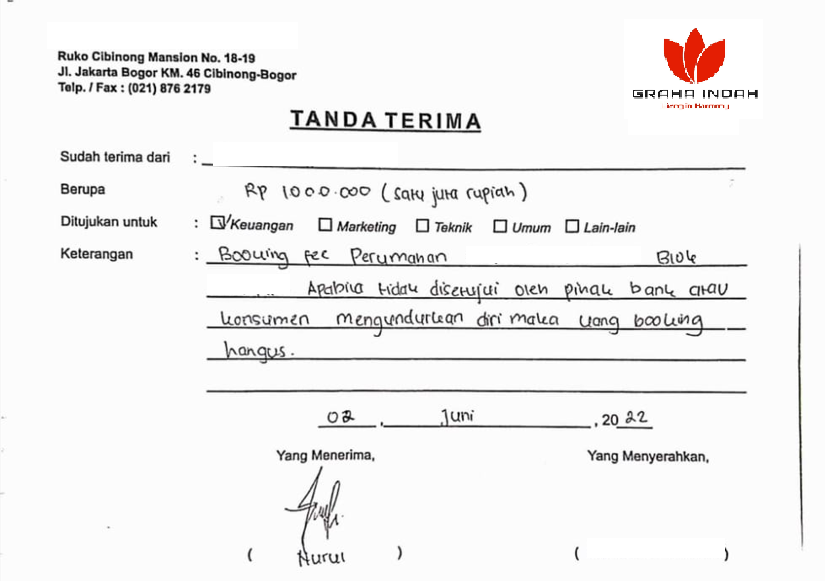 Ruko Cibinong Mansion No. 18-19
Jl. Jakarta Bogor KM. 46 Cibinong-Bogor
Telp. / Fax : (021) 876 2179
GRAHA INDAH
Living in Harmony
TANDA TERIMA
Sudah terima dari :
Berupa Rp 1000.000 (satu juta rupiah)
Ditujukan untuk : Keuangan Marketing Teknik Umum Lain-lain
Keterangan : Booking fee Perumahan Blok
Apabila tidak disetujui oleh pihak bank atau
konsumen mengundurkan diri maka uang booking
hangus.
02, Juni, 2022
Yang Menerima, Yang Menyerahkan,
( Nurul ) ( )